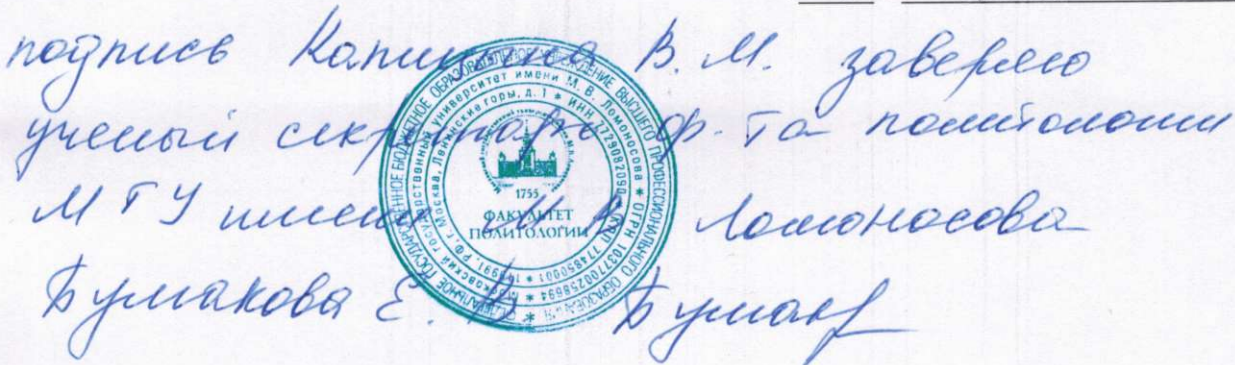 подпись Капицына В. М. заверяю
ученый секретарь ф-та политологии
МГУ имени М В Ломоносова
Бумакова Е.
ФЕДЕРАЛЬНОЕ ГОСУДАРСТВЕННОЕ БЮДЖЕТНОЕ ОБРАЗОВАТЕЛЬНОЕ УЧРЕЖДЕНИЕ ВЫСШЕГО ПРОФЕССИОНАЛЬНОГО ОБРАЗОВАНИЯ
Московский государственный университет имени М. В. Ломоносова * ОГРН 1037700258694 *
РФ, г. Москва, Ленинские горы, д. 1 * ИНН 7729082090
1755
ФАКУЛЬТЕТ
ПОЛИТОЛОГИИ